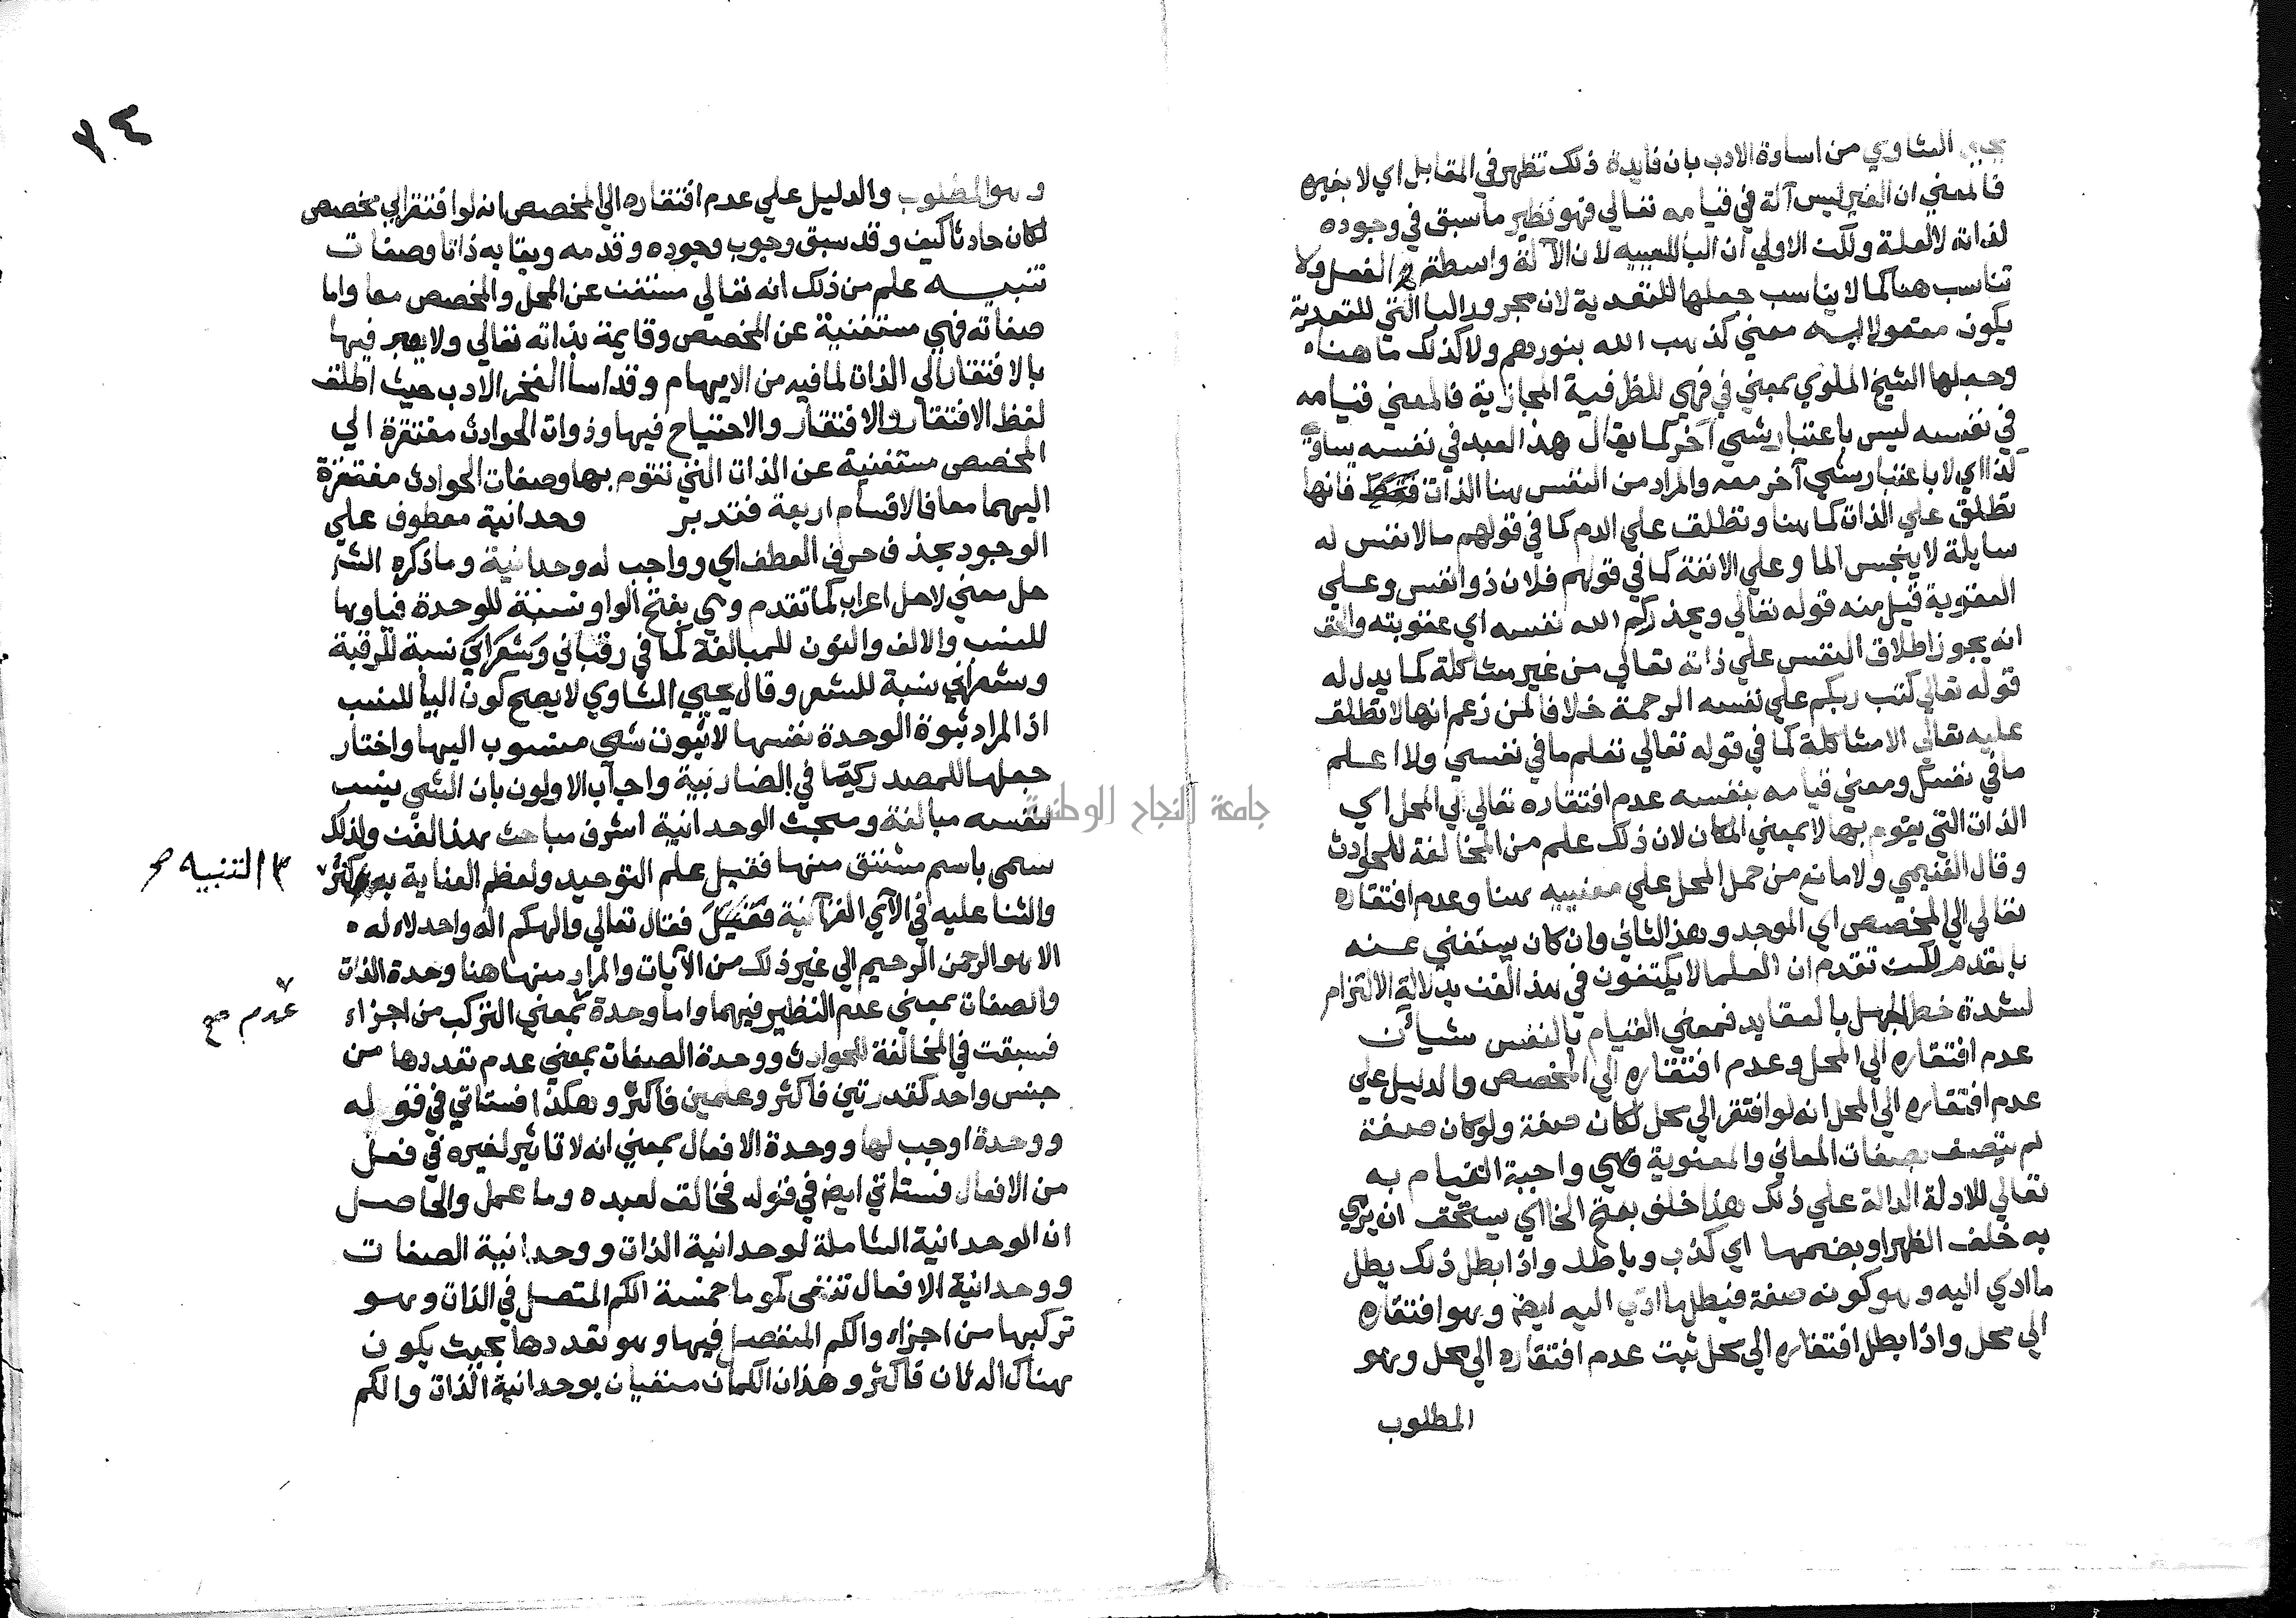 يحيى الشاوي من اساوة الادب بان فايدة ذلك تظهر في المقابل اي لا بغيره
فالمعني ان الغير ليس آلة في قيامه تعالي فهو نظير ما سبق في وجوده
لذاته لا لعلة ولكن الاولي ان البا للسببيه لان الآلة واسطة الفعل ولا
تناسب هنا كما لا يناسب جعلها للتعدية لان مجرور البا التي للتعدية
يكون معمولا معني كذهب الله بنورهم ولا كذلك ما هنا
وجعلها الشيخ الملوي بمعني في فهي للظرفية المجازية فالمعني قيامه
في نفسه ليس باعتبار شي آخر كما يقال هذا العبد في نفسه يساوي
كذا اي لا باعتبار شي آخر معه والمراد من النفس هنا الذات فقط فانها
تطلق علي الذات كما هنا وتطلق علي الدم كما في قولهم ما لا نفس له
سايلة لا ينجس الما وعلي الانفة كما في قولهم فلان ذو انفس وعلي
العقوبة قيل منه قوله تعالي ويحذركم الله نفسه اي عقوبته والحق
انه يجوز اطلاق النفس علي ذاته تعالي من غير مشاكلة كما يدل له
قوله تعالي كتب ربكم علي نفسه الرحمة خلافا لمن زعم انها لا تطلق
عليه تعالي الا مشاكلة كما في قوله تعالي تعلم ما في نفسي ولا اعلم
ما في نفسك ومعني قيامه بنفسه عدم افتقاره تعالي الي المحل اي
الذات التي يقوم بها لا بمعني المكان لان ذلك علم من المخالفة للحوادث
وقال الغنيمي ولا مانع من حمل المحل علي معنييه هنا وعدم افتقاره
تعالي الي المخصص اي الموجد وهذا الثاني وان كان يستغني عنه
بالقدم لكن تقدم ان العلما لا يكتفون في هذا الفن بدلالة الالتزام
لشدة خطر الجهل بالعقايد فمعني القيام بالنفس شيآن
عدم افتقاره الي المحل وعدم افتقاره الي المخصص والدليل علي
عدم افتقاره الي المحل انه لو افتقر الي محل لكان صفة ولو كان صفة
لم يتصف بصفات المعاني والمعنوية وهي واجبة القيام به
تعالي للادلة الدالة علي ذلك هذا خلف بفتح الخا اي يستحق ان يرمي
به خلف الظهر او بضمها اي كذب وباطل واذا بطل ذلك بطل
ما ادي اليه وهو كونه صفة فبطل ما ادي اليه ايض وهو افتقاره
الي محل واذا بطل افتقاره الي محل ثبت عدم افتقاره الي محل وهو
المطلوب
جامعة النجاح الوطنية
٧٤
وهو المطلوب والدليل علي عدم افتقاره الي المخصص انه لو افتقر الي مخصص
لكان حادثا كيف وقد سبق وجوب وجوده وقدمه وبقايه ذاتا وصفات
تنبيه علم من ذلك انه تعالي مستغن عن المحل والمخصص معا واما
صفاته فهي مستغنية عن المخصص وقايمة بذاته تعالي ولا يعبر فيها
بالافتقار الي الذات لما فيه من الايهام وقد اسا الفخر الادب حيث اطلق
لفظ الافتقار والافتقار والاحتياج فيها وذوات الحوادث مفتقرة الي
المخصص مستغنية عن الذات التي تقوم بها وصفات الحوادث مفتقرة
اليهما معا فالاقسام اربعة فتدبر وحدانية معطوف علي
الوجود بحذف حرف العطف اي وواجب له وحدانية وما ذكره الشر
حل معني لا حل اعراب كما تقدم وهي بفتح الواو نسبة للوحدة فياوها
للنسب والالف والنون للمبالغة كما في رقباني وشعراني نسبة للرقبة
وشعراني نسبة للشعر وقال يحيي الشاوي لا يصح كون اليا للنسب
اذ المراد ثبوة الوحدة نفسها لا ثبوت شي منسوب اليها واختار
جعلها للمصدر كما في الضاربية واجاب الاولون بان الشي ينسب
لنفسه مبالغة ومبحث الوحدانية اشرف مباحث هذا الفن ولذلك
سمى باسم مشتق منها فقيل علم التوحيد ولعظم العناية به كثر
٣ التنبيه صح
والثنا عليه في الآي القرآنية فقيل فقال تعالي والهكم اله واحد لا اله
الا هو الرحمن الرحيم الي غير ذلك من الآيات والمراد منها هنا وحدة الذات
والصفات بمعني عدم النظير فيهما واما وحدة بمعني التركب من اجزاء
عدم صح
فسبقت في المخالفة للحوادث ووحدة الصفات بمعني عدم تعددها من
جنس واحد كقدرتين فاكثر وعلمين فاكثر وهكذا فستاتي في قوله
ووحدة اوجب لها ووحدة الافعال بمعني انه لا تاثير لغيره في فعل
من الافعال فستاتي ايض في قوله فخالق لعبده وما عمل والحاصل
ان الوحدانية الشاملة لوحدانية الذات ووحدانية الصفات
ووحدانية الافعال تنفى كموما خمسة الكم المتصل في الذات وهو
تركبها من اجزاء والكم المنفصل فيها وهو تعددها بحيث يكون
هناك الهان فاكثر وهذان الكمان منفيان بوحدانية الذات والكم